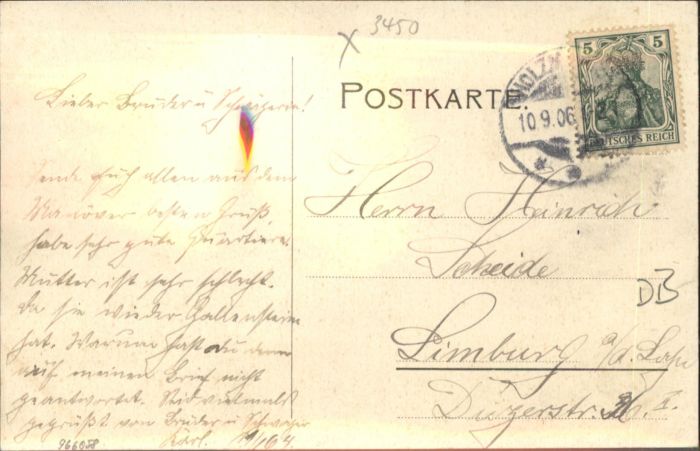 x 3450
POSTKARTE.
HOLZ
10.9.06
5 5
DEUTSCHES REICH
Lieber Bruder u Schwägerin!
Sende Euch allen aus dem
Manöver besten Gruß,
habe sehr gute Quartiere.
Mutter ist sehr schlecht.
Da sie wieder Gallenstein
hat. Warum hast du denn
auf meinen Brief nicht
geantwortet. Seid vielmals
gegrüßt vom Bruder u Schwager
Karl.
966058
Herrn Heinrich
Scheide
DB
Limburg a/d. Lahn
Diezerstr. I.